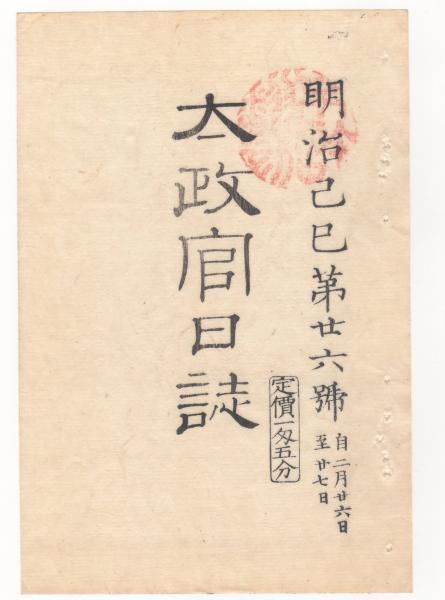 明治己巳第廿六號
自二月廿六日
至廿七日
定價一匁五分
太政官日誌